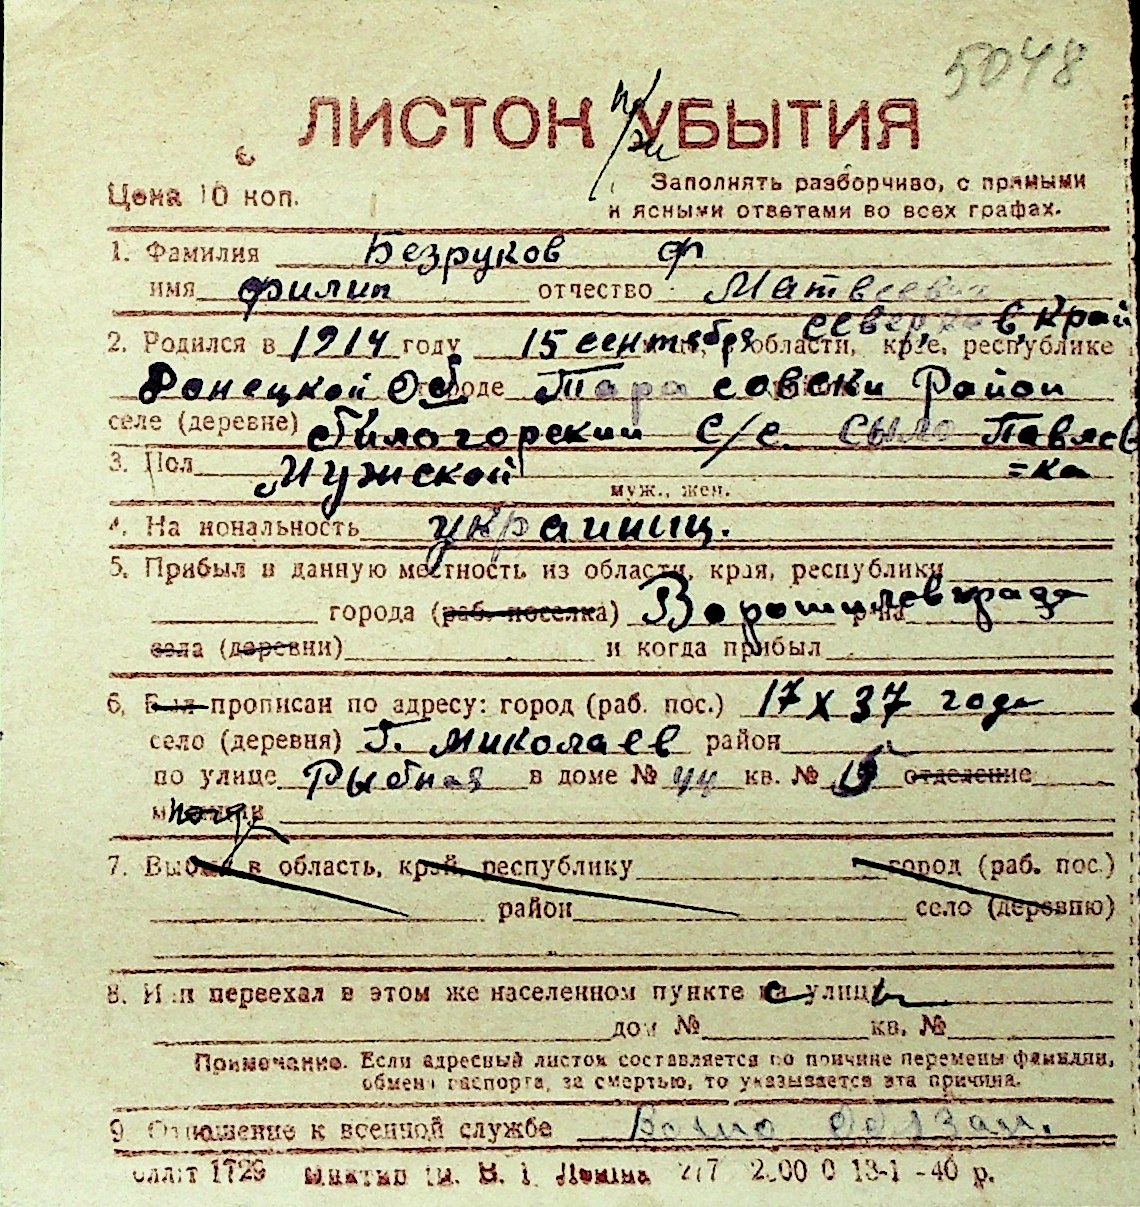 5048
ЛИСТОК УБЫТИЯ
Цена 10 коп.
Заполнять разборчиво, с прямыми
и ясными ответами во всех графах.
1. Фамилия Безруков Ф
имя Филип отчество Матвеевич
2. Родился в 1914 году 15 сентября области, крае, республике
Край
Донецкой Об городе Тарасовски Район
селе (деревне) с/с. сыло Павлев
=ка
3. Пол Мужской
муж., жен.
4. Национальность украиниц.
5. Прибыл в данную местность из области, края, республики
города (раб. поселка) Ворошиловграда р-на
села (деревни) и когда прибыл
6. Был прописан по адресу: город (раб. пос.) 17 X 37 года
село (деревня) Г. Миколаев район
по улице Рыбная в доме № кв. № отделение
милиции
7. Выбыл в область, край, республику город (раб. пос.)
район село (деревню)
8. Или переехал в этом же населенном пункте на улицу
дом № кв. №
Примечание. Если адресный листок составляется по причине перемены фамилии,
обмена паспорта, за смертью, то указывается эта причина.
9. Отношение к военной службе Воино Обязан.
1729 В. И. Ленина 13-1-40 р.